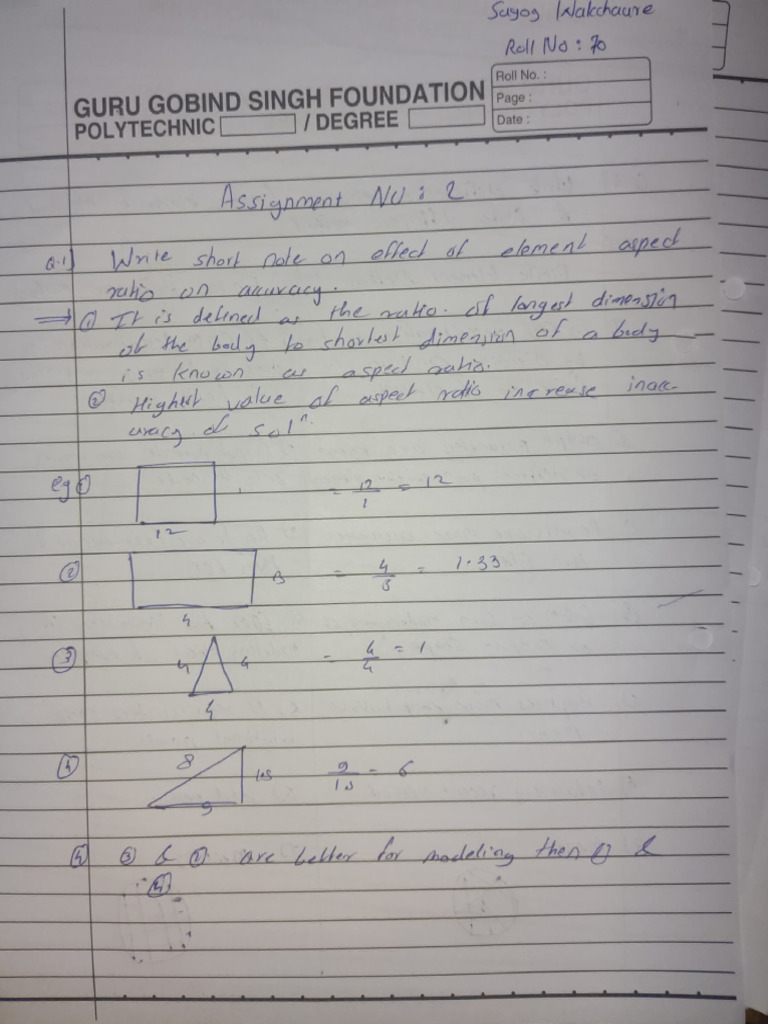 Sayog Wakchaure
Roll No : 70
Roll No. :
Page :
Date :
GURU GOBIND SINGH FOUNDATION
POLYTECHNIC / DEGREE
Assignment No : 2
Q.1) Write short note on effect of element aspect
ratio on accuracy.
⇒ ① It is defined as the ratio of longest dimension
of the body to shortest dimension of a body
is known as aspect ratio.
② Highest value of aspect ratio increase inacc
uracy of solⁿ.
eg ① = 12/1 = 12
12
② 3 = 4/3 = 1.33
4
③ 4 4 = 4/4 = 1
4
④ 8 1.5 9/1.5 = 6
9
④ ③ & ② are better for modeling then ① &
④